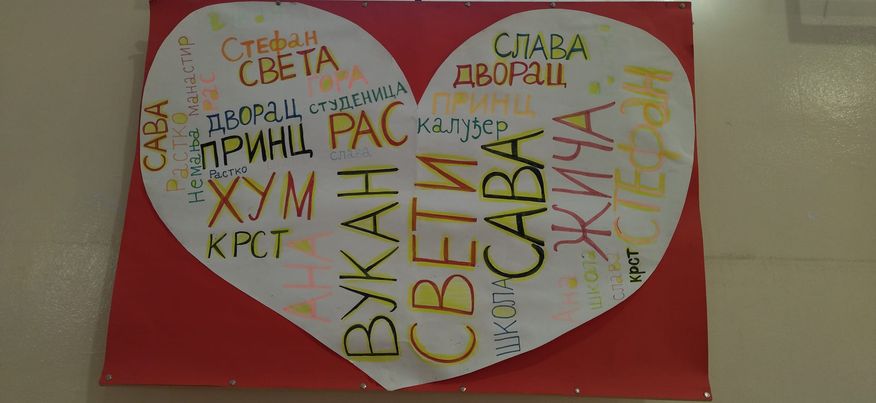 Стефан
СВЕТА
ГОРА
СТУДЕНИЦА
манастир
РАС
САВА
Растко
Немања
ДВОРАЦ
ПРИНЦ
РАС
слава
Растко
ХУМ
КРСТ
АНА
ВУКАН
СЛАВА
ДВОРАЦ
ПРИНЦ
калуђер
СВЕТИ
САВА
ЖИЧА
СТЕФАН
ШКОЛА
Ана
школа
слава
крст